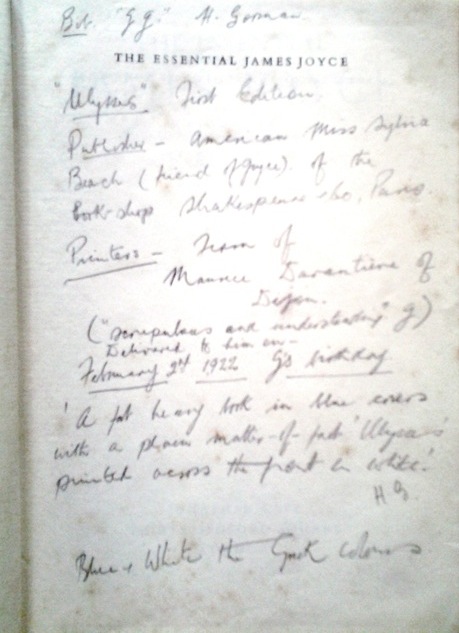 "J.J." H. Gorman.
THE ESSENTIAL JAMES JOYCE
"Ulysses" First Edition.
Publisher - American Miss Sylvia
Beach (friend of Joyce). of the
book-shop Shakespeare & Co, Paris.
Printers - Firm of
Maurice Darantière of
Dijon.
("scrupulous and understanding" J)
Delivered to him on -
February 2nd 1922 J's birthday
'A fat heavy book in blue covers
with a plain matter-of-fact 'Ulysses'
printed across the front in white.'
H G.
Blue & White the Greek colours